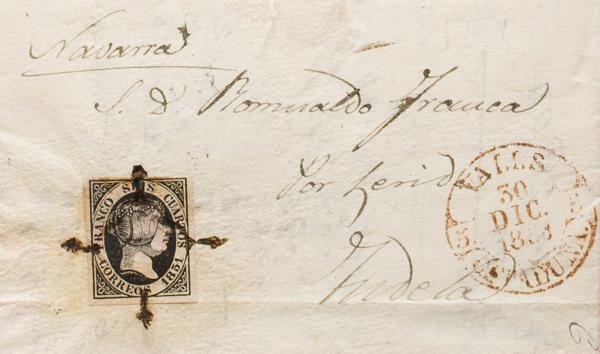 Navarra
S. D. Romualdo Franca
Por Lerida
Tudela
FRANCO SEIS CUARTOS
CORREOS 1851
VALLS
30
DIC.
CATALUÑA